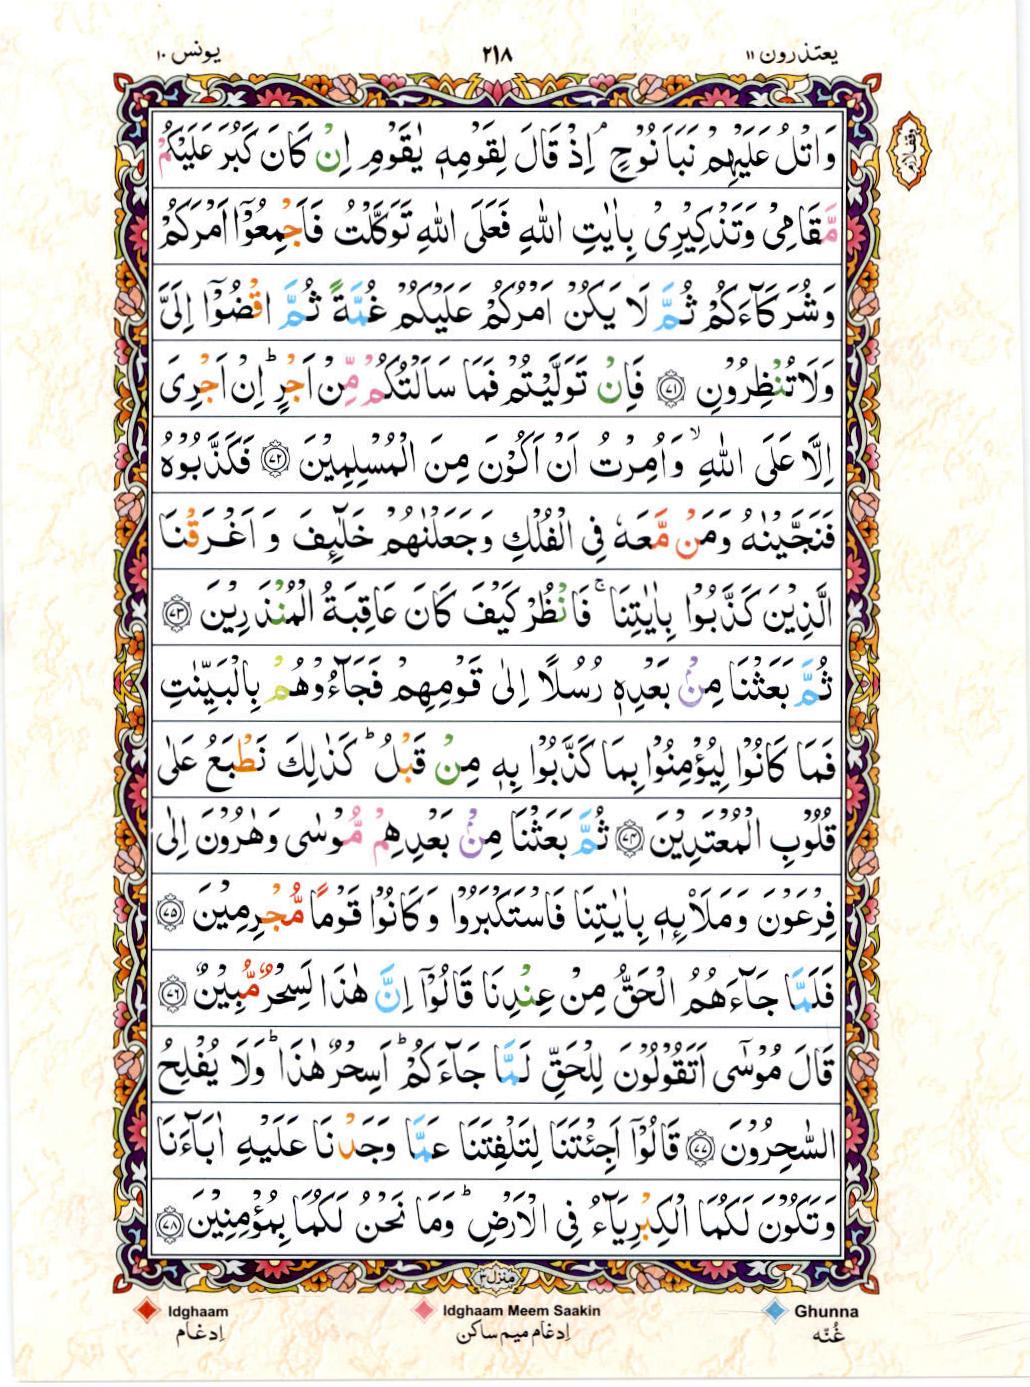 یعتذرون ۱۱
۲۱۸
یونس ۱۰
وقف لازم
وَاتْلُ عَلَیْهِمْ نَبَاَ نُوْحٍ ۘ اِذْ قَالَ لِقَوْمِهٖ یٰقَوْمِ اِنْ كَانَ كَبُرَ عَلَیْكُمْ
مَّقَامِیْ وَتَذْكِیْرِیْ بِاٰیٰتِ اللّٰهِ فَعَلَی اللّٰهِ تَوَكَّلْتُ فَاَجْمِعُوْۤا اَمْرَكُمْ
وَشُرَكَآءَكُمْ ثُمَّ لَا یَكُنْ اَمْرُكُمْ عَلَیْكُمْ غُمَّةً ثُمَّ اقْضُوْۤا اِلَیَّ
وَلَا تُنْظِرُوْنِ ﴿۷۱﴾ فَاِنْ تَوَلَّیْتُمْ فَمَا سَاَلْتُكُمْ مِّنْ اَجْرٍ ؕ اِنْ اَجْرِیَ
اِلَّا عَلَی اللّٰهِ ۙ وَاُمِرْتُ اَنْ اَكُوْنَ مِنَ الْمُسْلِمِیْنَ ﴿۷۲﴾ فَكَذَّبُوْهُ
فَنَجَّیْنٰهُ وَمَنْ مَّعَهٗ فِی الْفُلْكِ وَجَعَلْنٰهُمْ خَلٰٓئِفَ وَ اَغْرَقْنَا
الَّذِیْنَ كَذَّبُوْا بِاٰیٰتِنَا ۚ فَانْظُرْ كَیْفَ كَانَ عَاقِبَةُ الْمُنْذَرِیْنَ ﴿۷۳﴾
ثُمَّ بَعَثْنَا مِنْۢ بَعْدِهٖ رُسُلًا اِلٰی قَوْمِهِمْ فَجَآءُوْهُمْ بِالْبَیِّنٰتِ
فَمَا كَانُوْا لِیُؤْمِنُوْا بِمَا كَذَّبُوْا بِهٖ مِنْ قَبْلُ ؕ كَذٰلِكَ نَطْبَعُ عَلٰی
قُلُوْبِ الْمُعْتَدِیْنَ ﴿۷۴﴾ ثُمَّ بَعَثْنَا مِنْۢ بَعْدِهِمْ مُّوْسٰی وَهٰرُوْنَ اِلٰی
فِرْعَوْنَ وَمَلَا۟ئِهٖ بِاٰیٰتِنَا فَاسْتَكْبَرُوْا وَكَانُوْا قَوْمًا مُّجْرِمِیْنَ ﴿۷۵﴾
فَلَمَّا جَآءَهُمُ الْحَقُّ مِنْ عِنْدِنَا قَالُوْۤا اِنَّ هٰذَا لَسِحْرٌ مُّبِیْنٌ ﴿۷۶﴾
قَالَ مُوْسٰۤی اَتَقُوْلُوْنَ لِلْحَقِّ لَمَّا جَآءَكُمْ ؕ اَسِحْرٌ هٰذَا ؕ وَلَا یُفْلِحُ
السّٰحِرُوْنَ ﴿۷۷﴾ قَالُوْۤا اَجِئْتَنَا لِتَلْفِتَنَا عَمَّا وَجَدْنَا عَلَیْهِ اٰبَآءَنَا
وَتَكُوْنَ لَكُمَا الْكِبْرِیَآءُ فِی الْاَرْضِ ؕ وَمَا نَحْنُ لَكُمَا بِمُؤْمِنِیْنَ ﴿۷۸﴾
منزل ۳
Idghaam Idghaam Meem Saakin Ghunna
اِدغام اِدغام میم ساکن غُنّه